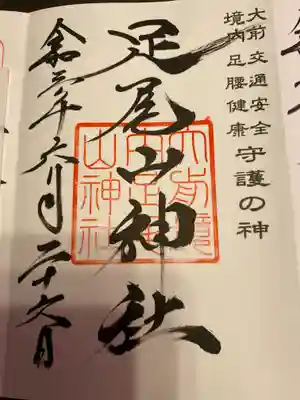 大前 交通安全
境内 足腰健康 守護の神
足尾山神社
令和六年六月二十六日